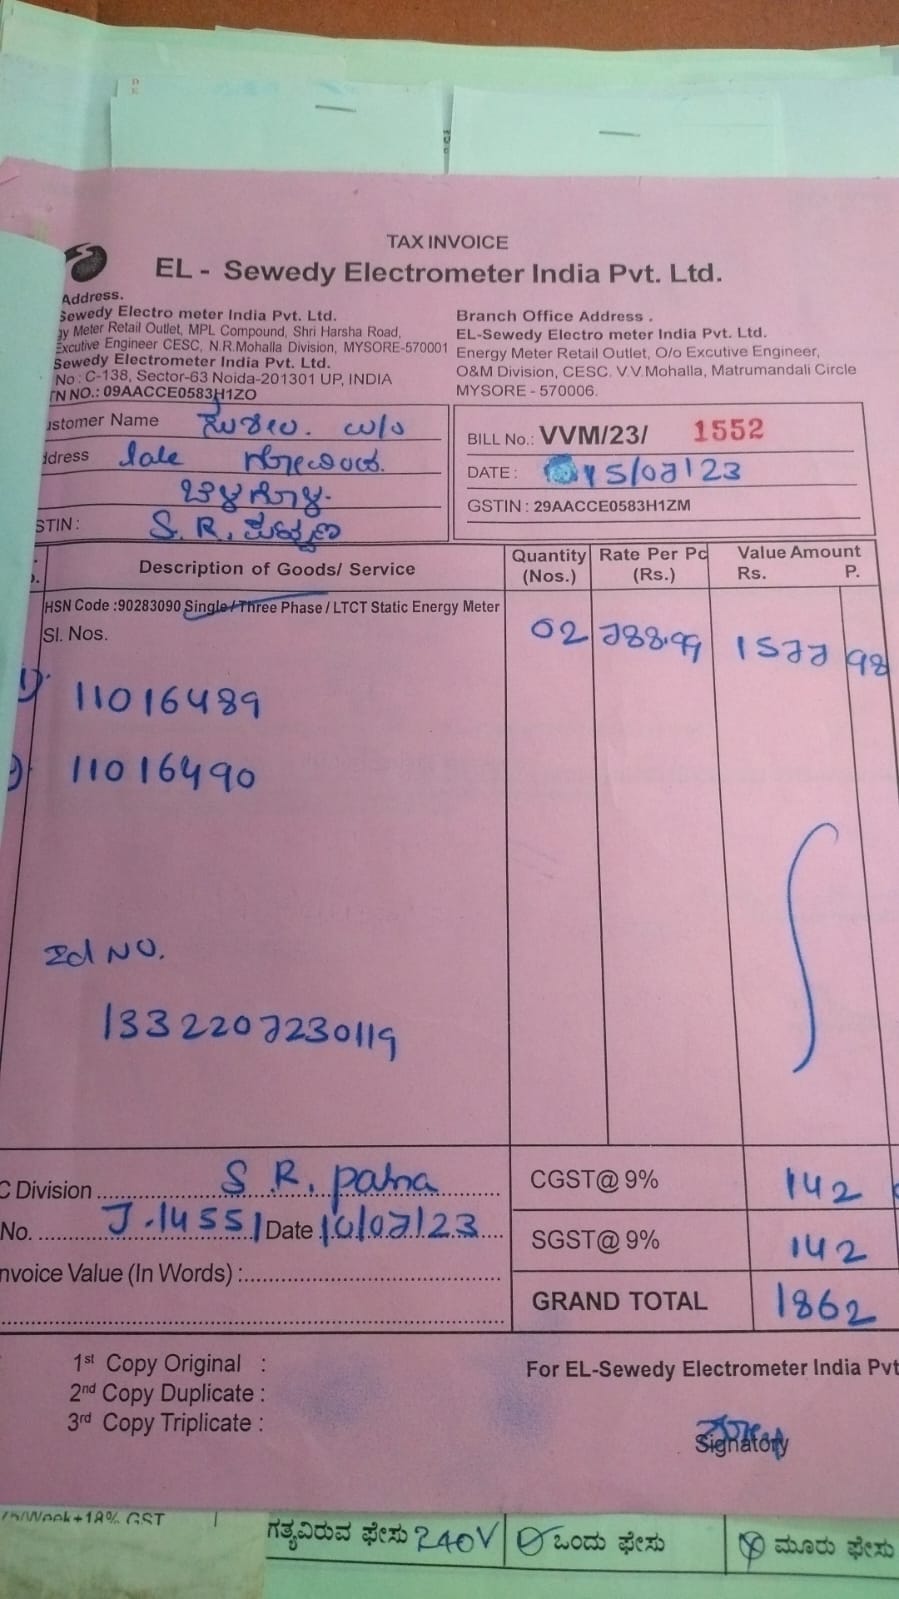 TAX INVOICE
EL - Sewedy Electrometer India Pvt. Ltd.
Address.
Sewedy Electro meter India Pvt. Ltd.
gy Meter Retail Outlet, MPL Compound, Shri Harsha Road,
Excutive Engineer CESC, N.R.Mohalla Division, MYSORE-570001
Sewedy Electrometer India Pvt. Ltd.
No : C-138, Sector-63 Noida-201301 UP, INDIA
TN NO.: 09AACCE0583H1ZO
Branch Office Address .
EL-Sewedy Electro meter India Pvt. Ltd.
Energy Meter Retail Outlet, O/o Excutive Engineer,
O&M Division, CESC. V.V.Mohalla, Matrumandali Circle
MYSORE - 570006.
ustomer Name ಸುಶೀಲ. w/o
ddress late ಗೋವಿಂದ.
STIN : S. R. ಪಟ್ಟಣ
BILL No.: VVM/23/ 1552
DATE : 15/07/23
GSTIN : 29AACCE0583H1ZM
Description of Goods/ Service
Quantity (Nos.)
Rate Per Pc (Rs.)
Value Amount
Rs. P.
HSN Code :90283090 Single / Three Phase / LTCT Static Energy Meter
Sl. Nos.
02 788.99 1577 98
1) 11016489
11016490
Id NO.
1332207230119
C Division S. R. Patna
No. J.14551 Date 10/07/23
nvoice Value (In Words) :
CGST@ 9% 142
SGST@ 9% 142
GRAND TOTAL 1862
1st Copy Original :
2nd Copy Duplicate :
3rd Copy Triplicate :
For EL-Sewedy Electrometer India Pvt
Signatory
/Week+18% GST
ಗತ್ಯವಿರುವ ಫೇಸು 240V ಒಂದು ಫೇಸು ಮೂರು ಫೇಸು